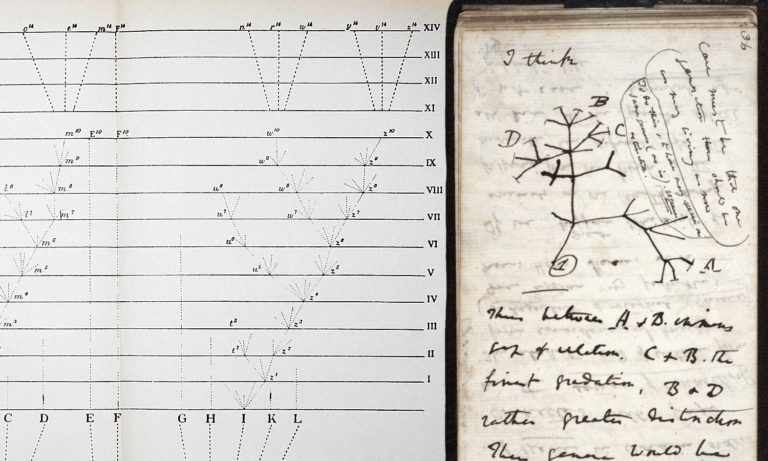 o14 e14 m14 F14 n14 r14 w14 y14 v14 z14 XIV
XIII
XII
XI
m10 E10 F10 w10 z10 X
m9 w9 z9 IX
l8 m8 u8 w8 z8 VIII
l7 m7 u7 w7 z7 VII
m6 u6 z6 VI
m5 u5 z5 V
m4 z4 IV
m3 t3 z3 III
t2 z2 II
z1 I
C D E F G H I K L
36
I think
B
D
C
A
1
Case must be that one
generation then should be
as many living as now
To do this & to have many species in
same genus (as is) requires
extinction
Thus between A & B. immens
gap of relation. C & B. the
finest gradation, B & D
rather greater distinction
Thus genera would be